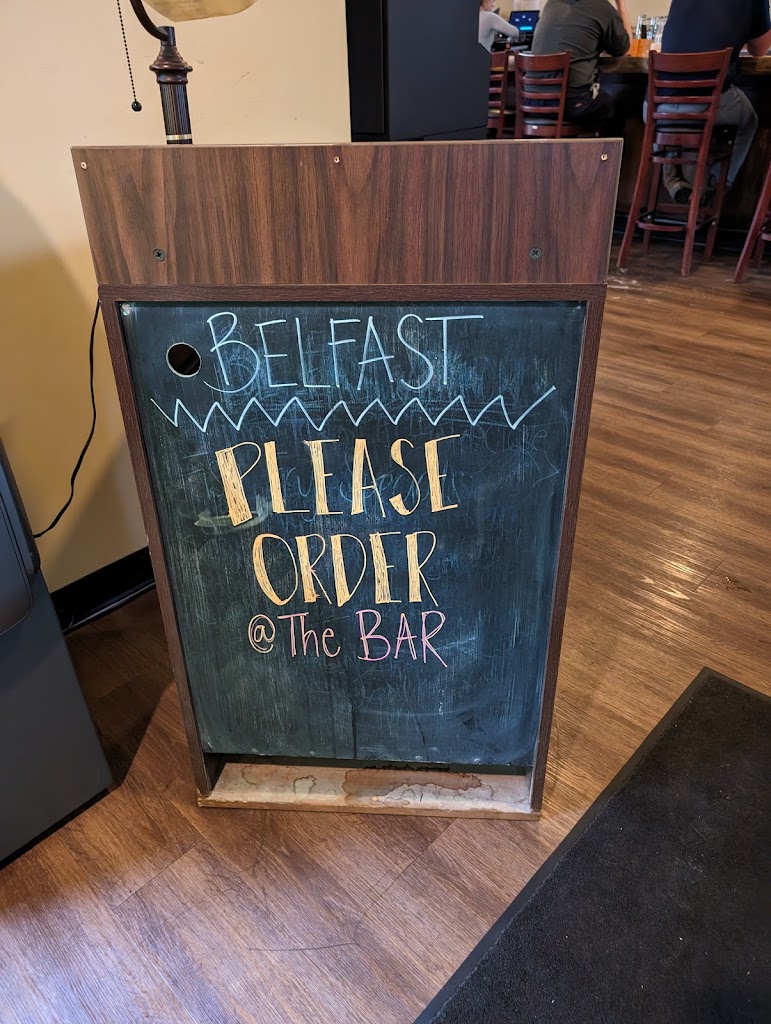 BELFAST
PLEASE
ORDER
@ The BAR